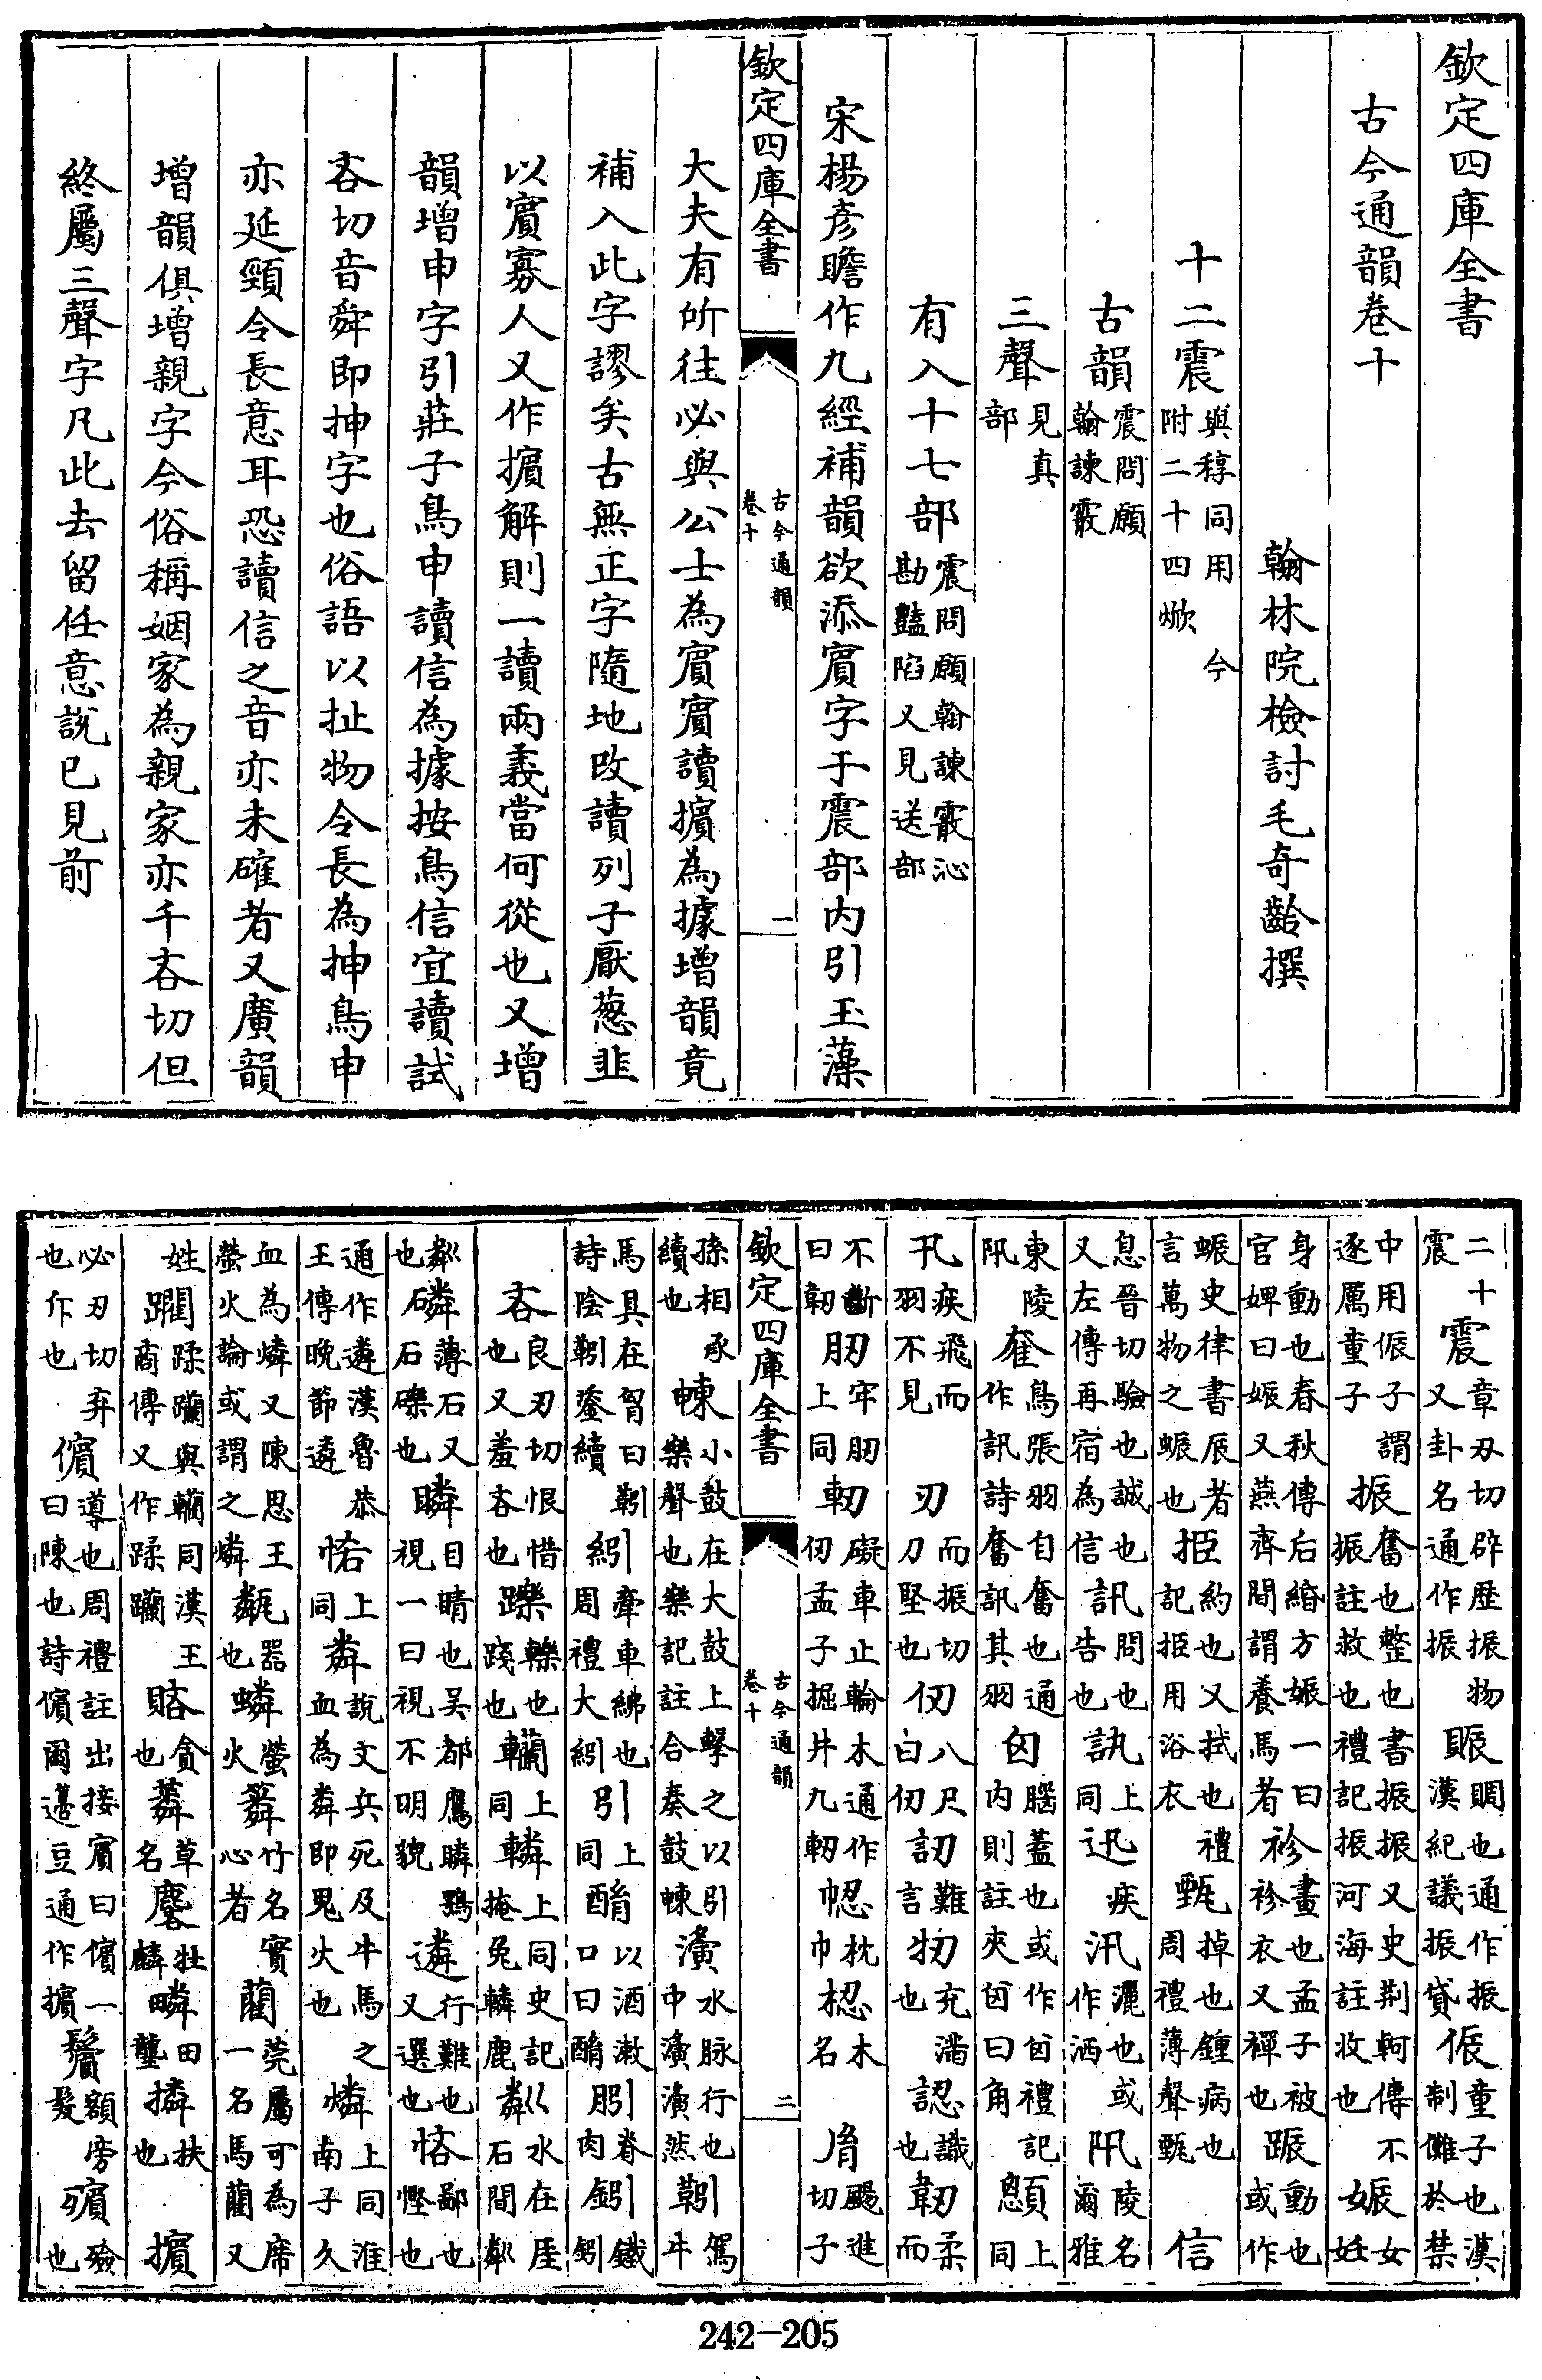 欽定四庫全書
古今通韻卷十
翰林院檢討毛奇齡撰
十二震與稕同用今附二十四焮
古韻震問願翰諫霰
三聲見真部
有入十七部震問願翰諫霰沁勘豔陷又見送部
宋楊彥瞻作九經補韻欲添賓字于震部內引玉藻
欽定四庫全書
古今通韻
卷十
一
大夫有所往必與公士為賓賓讀擯為據增韻竟
補入此字謬矣古無正字隨地改讀列子厭葱韭
以賓寡人又作擯解則一讀兩義當何從也又增
韻增申字引莊子鳥申讀信為據按鳥信宜讀試
吝切音舜即抻字也俗語以扯物令長為抻鳥申
亦延頸令長意耳恐讀信之音亦未確者又廣韻
增韻俱增親字今俗稱姻家為親家亦千吝切但
終屬三聲字凡此去留任意說已見前
二十震章刃切辟歴振物又卦名通作振賑賙也通作振漢紀議振貸侲童子也漢制儺於禁
中用侲子謂逐厲童子振奮也整也書振振又史荆軻傳不振註救也禮記振河海註收也娠女妊
身動也春秋傳后緡方娠一曰官婢曰娠又燕齊間謂養馬者袗畫也孟子被袗衣又襌也蹍動也或作
蜄史律書辰者言萬物之蜄也挋約也又拭也禮記挋用浴衣甄掉也鍾病也周禮薄聲甄信
息晉切驗也誠也又左傳再宿為信訊問也告也訙上同迅疾汛灑也或作洒阠陵名爾雅
東陵阠奞鳥張羽自奮也通作訊詩奮訊其羽囟腦蓋也或作囟禮記內則註夾囟曰角顖上同
卂疾飛而羽不見刃而振切刀堅也仞八尺曰仞訒難言牣充滿也認識也韌柔而
不斷曰韌肕牢肕上同軔礙車止輪木通作仞孟子掘井九軔㠴枕巾梕木名胤颺進切子
欽定四庫全書
古今通韻
卷十
二
孫相承續也㯥小鼓在大鼓上擊之以引樂聲也樂記註合奏鼓㯥濥水脉行也中濥濥然靷駕牛
馬具在胷曰靷詩陰靷鋈續紖牽車紼也周禮大紖引上同酳以酒漱口曰酳朋脊肉鈏鐵鈏
吝良刃切恨惜也又羞吝也躒轢也踐也轥上同轔上同史記掩兔轔鹿粼水在厓石間粼
粼也磷薄石又石礫也瞵目睛也吳都鷹瞵鶚視一曰視不明貌遴行難也又選也悋鄙也慳也
通作遴漢魯恭王傳晚節遴㤲上同粦說文兵死及牛馬之血為粦粦即鬼火也燐上同淮南子久
血為燐又陳思王螢火論或謂之燐甐器也蟒螢火䉮竹名實心者藺莞屬可為席一名馬藺又
姓躙蹂躪與轥同漢王商傳又作蹂躪賂貪也䔖草名麐牡麟疄田壟撛扶也擯
必刃切弃也斥也儐導也周禮註出接賓曰儐一曰陳也詩儐爾籩豆通作擯鬢額旁髮殯殮也
242-205